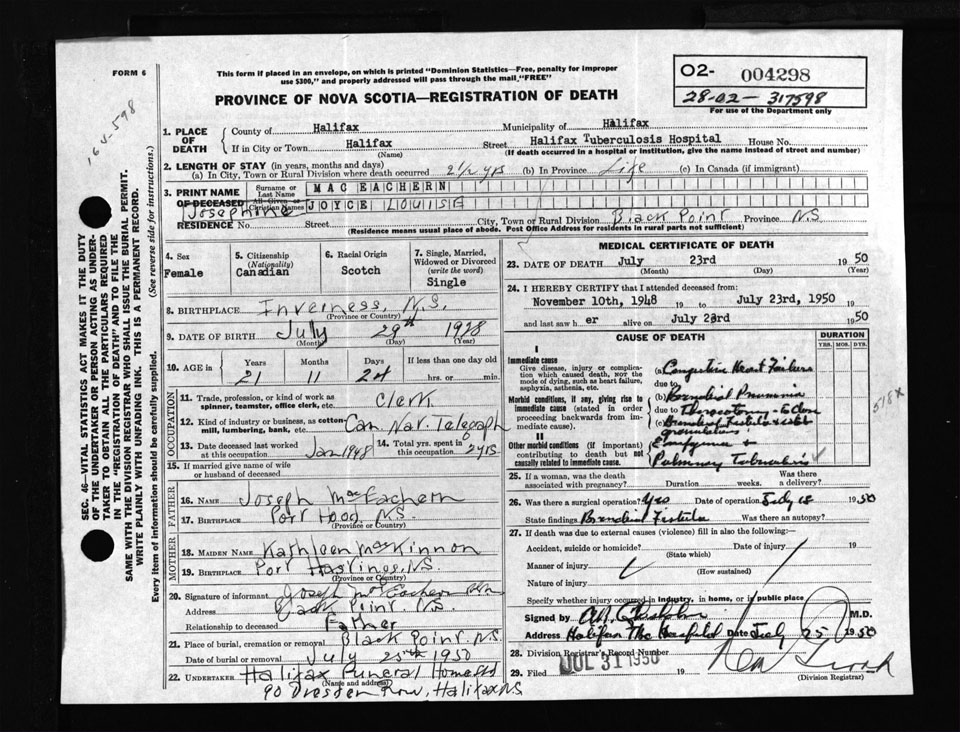 FORM 6
This form if placed in an envelope, on which is printed "Dominion Statistics—Free, penalty for improper
use $300," and properly addressed will pass through the mail "FREE"
PROVINCE OF NOVA SCOTIA—REGISTRATION OF DEATH
02- 004298
28-02-317598
For use of the Department only
165-598
SEC. 46—VITAL STATISTICS ACT MAKES IT THE DUTY
OF THE UNDERTAKER OR PERSON ACTING AS UNDER-
TAKER TO OBTAIN ALL THE PARTICULARS REQUIRED
IN THE "REGISTRATION OF DEATH" AND TO FILE THE
SAME WITH THE DIVISION REGISTRAR WHO SHALL ISSUE THE BURIAL PERMIT.
WRITE PLAINLY WITH UNFADING INK. THIS IS A PERMANENT RECORD.
Every item of information should be carefully supplied. (See reverse side for instructions.)
1. PLACE OF DEATH County of Halifax Municipality of Halifax
If in City or Town Halifax (Name) Street Halifax Tuberculosis Hospital House No.
(If death occurred in a hospital or institution, give the name instead of street and number)
2. LENGTH OF STAY (in years, months and days)
(a) In City, Town or Rural Division where death occurred 2 1/2 yrs (b) In Province Life (c) In Canada (if immigrant)
3. PRINT NAME OF DECEASED Surname or Last Name MAC EACHERN
All Given or Christian Names JOYCE LOUISE
Josephine
RESIDENCE No. Street City, Town or Rural Division Black Point Province N.S.
(Residence means usual place of abode. Post Office Address for residents in rural parts not sufficient)
4. Sex Female
5. Citizenship (Nationality) Canadian
6. Racial Origin Scotch
7. Single, Married, Widowed or Divorced (write the word) Single
8. BIRTHPLACE Inverness, N.S.
(Province or Country)
9. DATE OF BIRTH July 29th 1928
(Month) (Day) (Year)
10. AGE in Years 21 Months 11 Days 24 If less than one day old hrs. or min.
OCCUPATION
11. Trade, profession or kind of work as spinner, teamster, office clerk, etc. Clerk
12. Kind of industry or business, as cotton mill, lumbering, bank, etc. Can. Nat. Telegraph
13. Date deceased last worked at this occupation Jan 1948 14. Total yrs. spent in this occupation 2 yrs
15. If married give name of wife or husband of deceased
FATHER
16. Name Joseph MacEachern
17. Birthplace Port Hood N.S.
(Province or Country)
MOTHER
18. Maiden Name Kathleen MacKinnon
19. Birthplace Port Hastings, N.S.
(Province or Country)
20. Signature of informant Joseph McEachern
Address Black Point. N.S.
Relationship to deceased Father
21. Place of burial, cremation or removal Black Point. N.S.
Date of burial or removal July 25th 1950
22. UNDERTAKER Halifax Funeral Home
(Name and address)
90 Dresden Row, Halifax NS
MEDICAL CERTIFICATE OF DEATH
23. DATE OF DEATH July 23rd 1950
(Month) (Day) (Year)
24. I HEREBY CERTIFY that I attended deceased from:
November 10th, 1948 19 to July 23rd, 1950 19
and last saw her alive on July 23rd 1950
CAUSE OF DEATH
DURATION
YRS. MOS. DYS.
I
Immediate cause
Give disease, injury or complication which caused death, not the mode of dying, such as heart failure, asphyxia, asthenia, etc.
(a) Congestive Heart Failure
due to
Morbid conditions, if any, giving rise to immediate cause (stated in order proceeding backwards from immediate cause).
(b) Bronchial Pneumonia
due to Thoracotomy - to close
(c) Bronchial Fistula
518x
II
Other morbid conditions (if important) contributing to death but not causally related to immediate cause.
Empyema &
Pulmonary Tuberculosis
25. If a woman, was the death associated with pregnancy? Duration weeks. Was there a delivery?
26. Was there a surgical operation? Yes Date of operation July 18 1950
State findings Bronchial Fistula Was there an autopsy?
27. If death was due to external causes (violence) fill in also the following:—
Accident, suicide or homicide? Date of injury 19
(State which)
Manner of injury
(How sustained)
Nature of injury
Specify whether injury occurred in industry, in home, or in public place
Signed by M.D.
Address Halifax The Hospital Date July 25 1950
28. Division Registrar's Record Number
29. Filed JUL 31 1950 19
(Division Registrar)